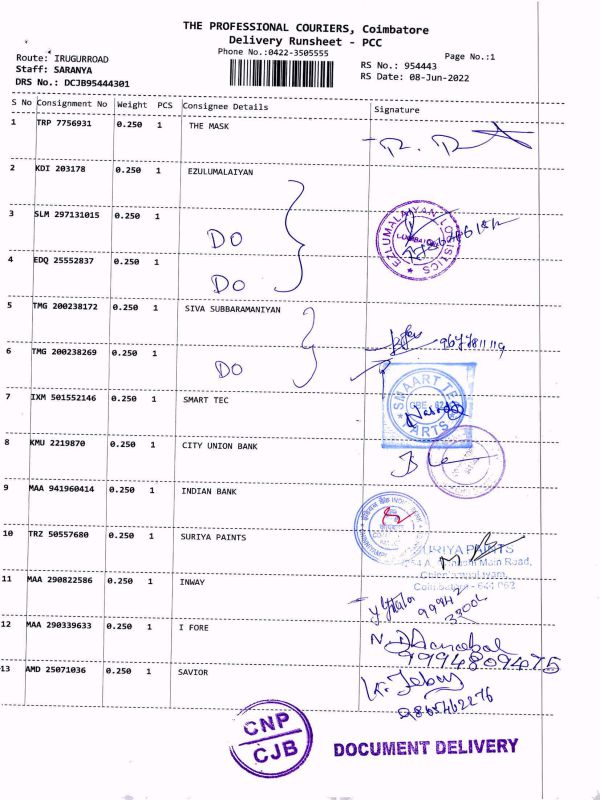 THE PROFESSIONAL COURIERS, Coimbatore
Delivery Runsheet - PCC
Phone No.:0422-3505555
Page No.:1
Route: IRUGURROAD
Staff: SARANYA
DRS No.: DCJB95444301
RS No.: 954443
RS Date: 08-Jun-2022
S No Consignment No Weight PCS Consignee Details Signature
1 TRP 7756931 0.250 1 THE MASK
2 KDI 203178 0.250 1 EZULUMALAIYAN
3 SLM 297131015 0.250 1 DO
EZLUMALAIYAN LOGISTICS
4 EDQ 25552837 0.250 1 DO
5 TMG 200238172 0.250 1 SIVA SUBBARAMANIYAN
6 TMG 200238269 0.250 1 DO
7 IXM 501552146 0.250 1 SMART TEC
SMAART TEC PARTS
8 KMU 2219870 0.250 1 CITY UNION BANK
9 MAA 941960414 0.250 1 INDIAN BANK
10 TRZ 50557680 0.250 1 SURIYA PAINTS
SURIYA PAINTS
Main Road,
11 MAA 290822586 0.250 1 INWAY
12 MAA 290339633 0.250 1 I FORE
9994809475
13 AMD 25071036 0.250 1 SAVIOR
9865462276
CNP
CJB
DOCUMENT DELIVERY